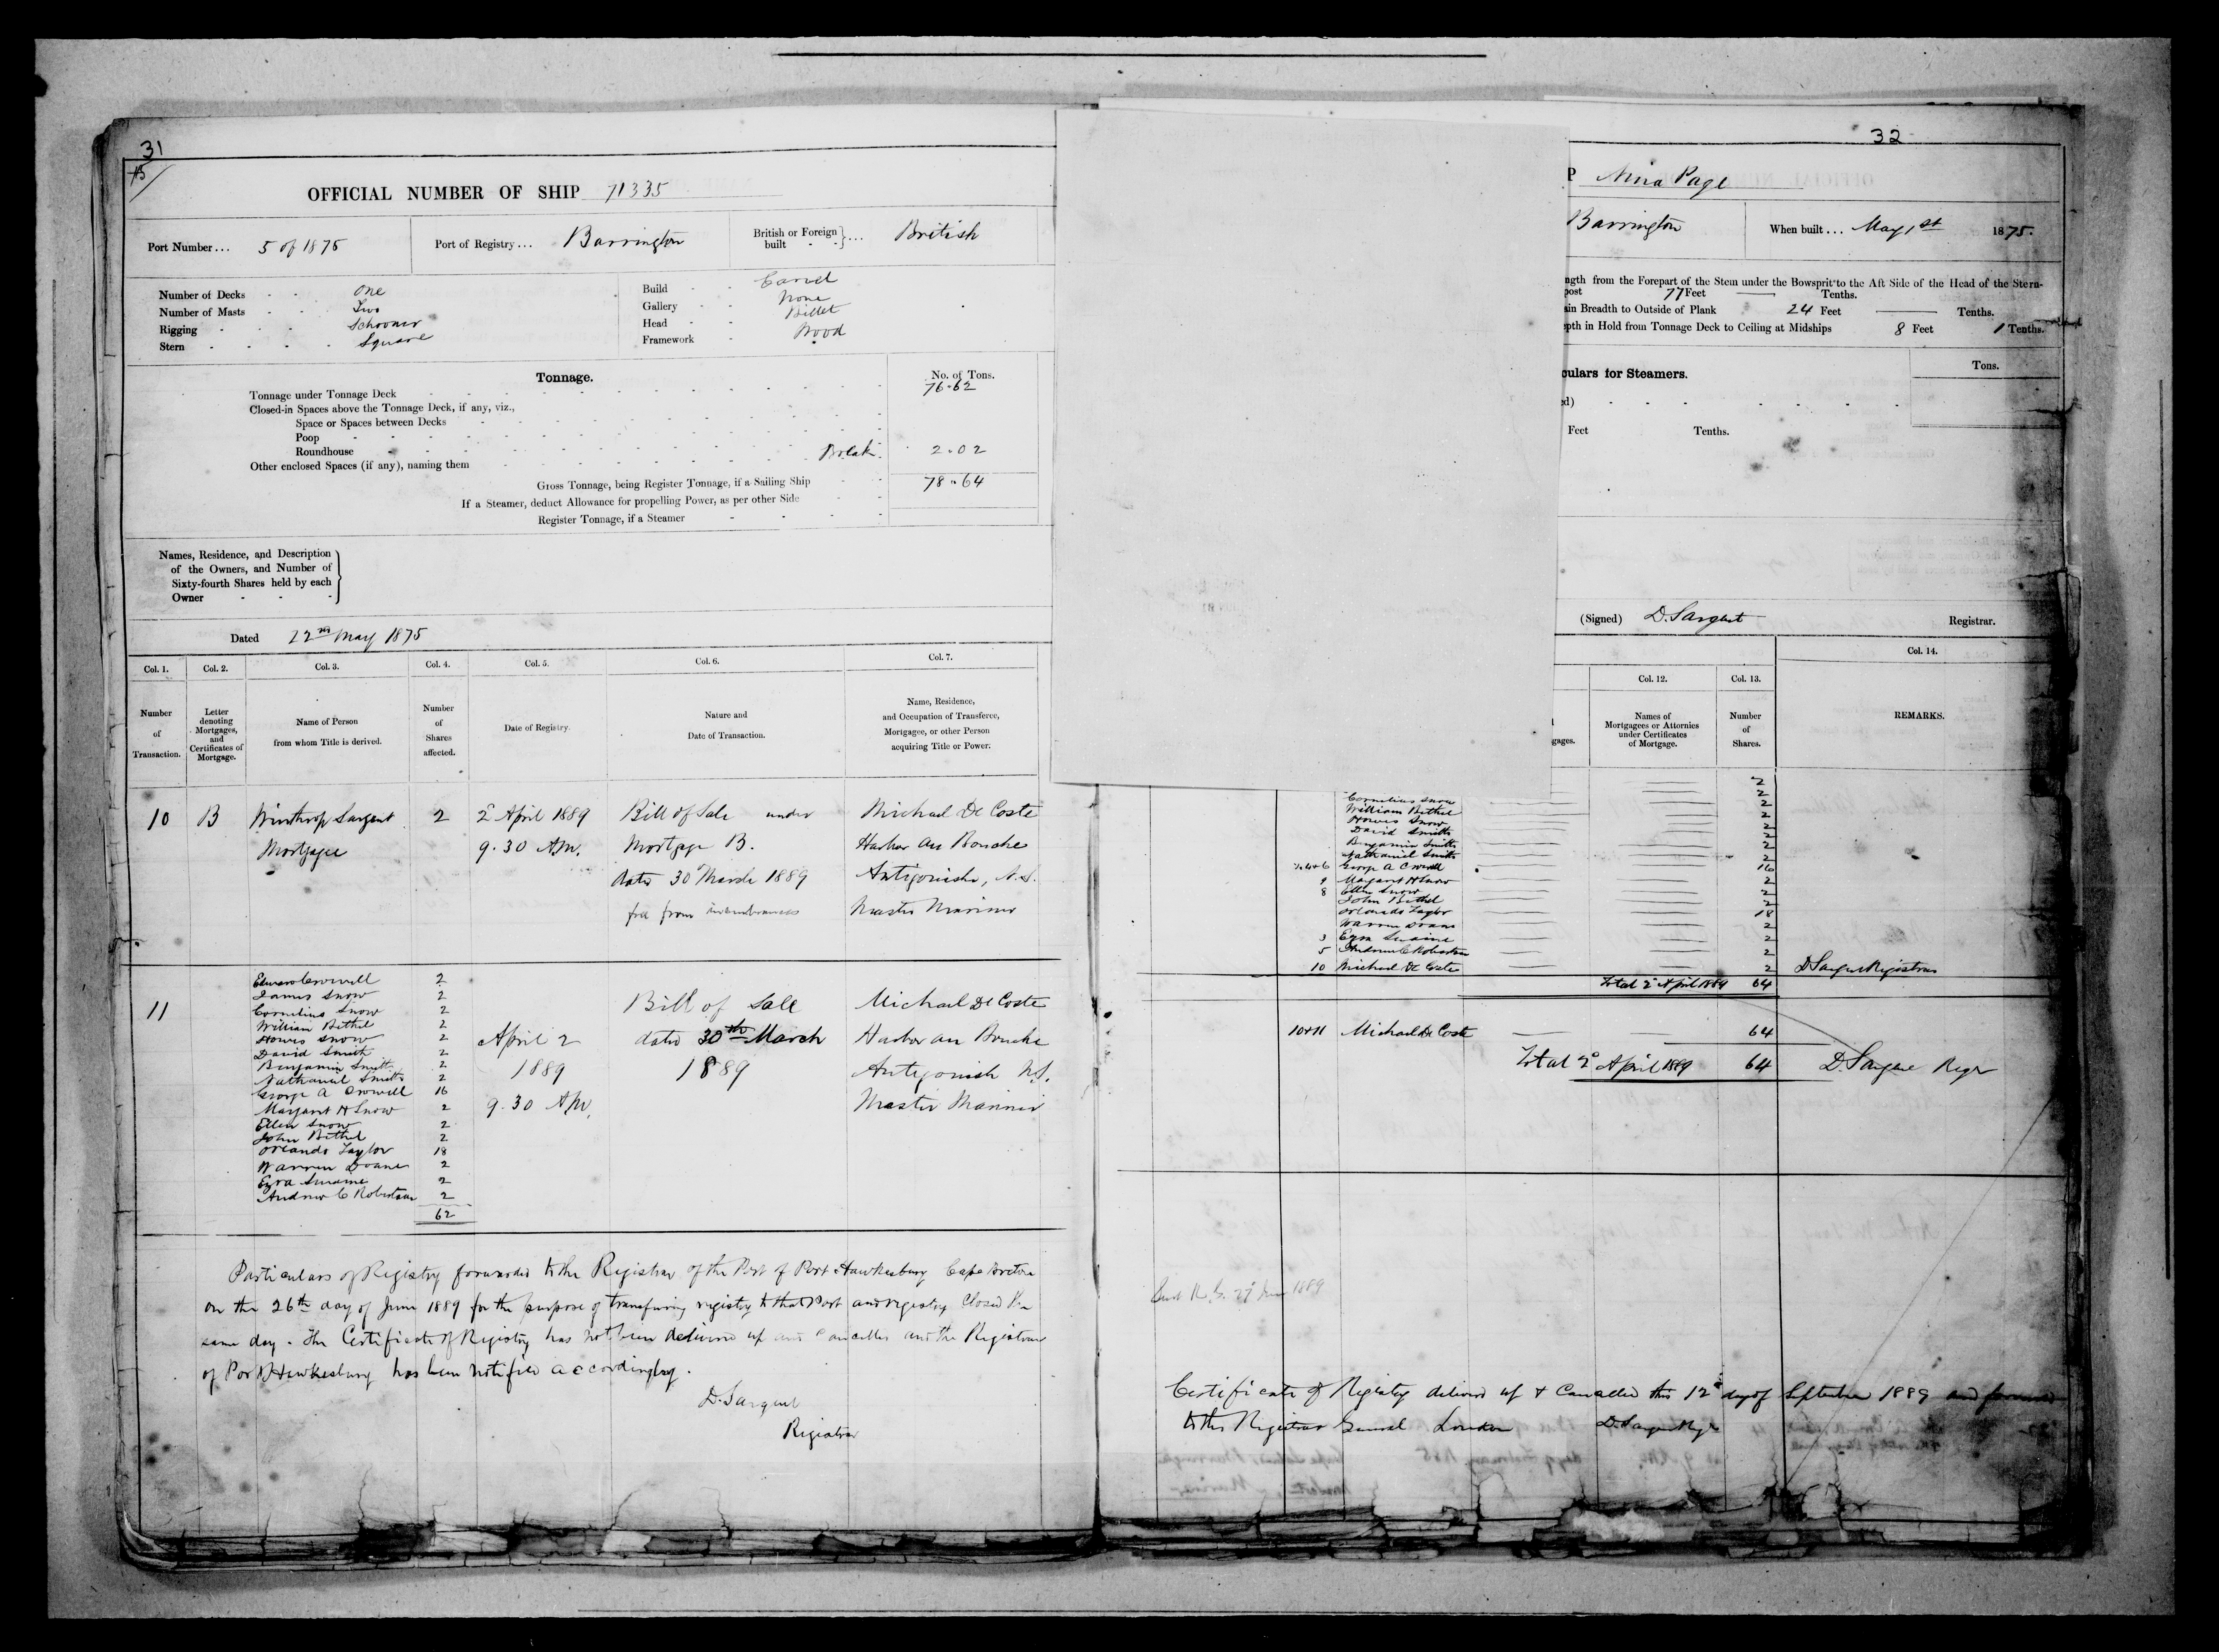 31
15
OFFICIAL NUMBER OF SHIP 71335
Port Number... 5 of 1875
Port of Registry... Barrington
British or Foreign built } ... British
Number of Decks - - One
Number of Masts - - Two
Rigging - - - Schooner
Stern - - - - Square
Build - - Carvel
Gallery - - None
Head - - Billet
Framework - Wood
Tonnage.
No. of Tons.
Tonnage under Tonnage Deck 76.62
Closed-in Spaces above the Tonnage Deck, if any, viz.,
Space or Spaces between Decks
Poop
Roundhouse Break 2.02
Other enclosed Spaces (if any), naming them
Gross Tonnage, being Register Tonnage, if a Sailing Ship 78.64
If a Steamer, deduct Allowance for propelling Power, as per other Side
Register Tonnage, if a Steamer
Names, Residence, and Description
of the Owners, and Number of
Sixty-fourth Shares held by each
Owner
Dated 12th May 1875
Col. 1. Col. 2. Col. 3. Col. 4. Col. 5. Col. 6. Col. 7.
Number of Transaction.
Letter denoting Mortgages, and Certificates of Mortgage.
Name of Person from whom Title is derived.
Number of Shares affected.
Date of Registry.
Nature and Date of Transaction.
Name, Residence, and Occupation of Transferee, Mortgagee, or other Person acquiring Title or Power.
10 B Winthrop Sargent 2 2 April 1889 Bill of Sale under Michael De Coste
Mortgagee 9.30 AM. Mortgage B. Harbor au Bouche
dated 30 March 1889 Antigonish, N.S.
free from incumbrances Master Mariner
11
Edward Crowell 2
James Snow 2
Cornelius Snow 2
William Bethel 2
Howes Snow 2
David Smith 2
Benjamin Smith 2
Nathaniel Smith 2
George A Crowell 16
Margaret H Snow 2
Ellen Snow 2
John Bethel 2
Orlando Taylor 18
Warren Doane 2
Ezra Swaine 2
Andrew C Robertson 2
62
April 2
1889
9.30 AM.
Bill of Sale
dated 30th March
1889
Michael De Coste
Harbor au Bouche
Antigonish N.S.
Master Mariner
Particulars of Registry forwarded to the Registrar of the Port of Port Hawkesbury Cape Breton
on the 26th day of June 1889 for the purpose of transfering registry to that Port and registry Closed the
same day. The Certificate of Registry has not been delivered up and cancelled and the Registrar
of Port Hawkesbury has been notified accordingly.
D. Sargent
Registrar
32
P Nina Page
Barrington
When built... May 1st 1875.
ngth from the Forepart of the Stem under the Bowsprit to the Aft Side of the Head of the Stern-
post 77 Feet Tenths.
ain Breadth to Outside of Plank 24 Feet Tenths.
epth in Hold from Tonnage Deck to Ceiling at Midships 8 Feet 1 Tenths.
culars for Steamers.
Tons.
ed)
Feet Tenths.
(Signed) D. Sargent Registrar.
Col. 12. Col. 13. Col. 14.
gages.
Names of Mortgagees or Attornies under Certificates of Mortgage.
Number of Shares.
REMARKS.
2
Cornelius Snow 2
William Bethel 2
Howes Snow 2
David Smith 2
Benjamin Smith 2
Nathaniel Smith 2
George A Crowell 16
9 Margaret H Snow 2
8 Ellen Snow 2
John Bethel 2
Orlando Taylor 18
Warren Doane 2
3 Ezra Swaine 2
5 Andrew C Robertson 2
10 Michael De Coste 2 D Sargent Registrar
Total 2d April 1889 64
10+11 Michael De Coste 64
Total 2d April 1889 64 D. Sargent Regr
1889
Certificate of Registry delivered up & Cancelled this 12th day of September 1889 and forwarded
to the Registrar General London D. Sargent Regr